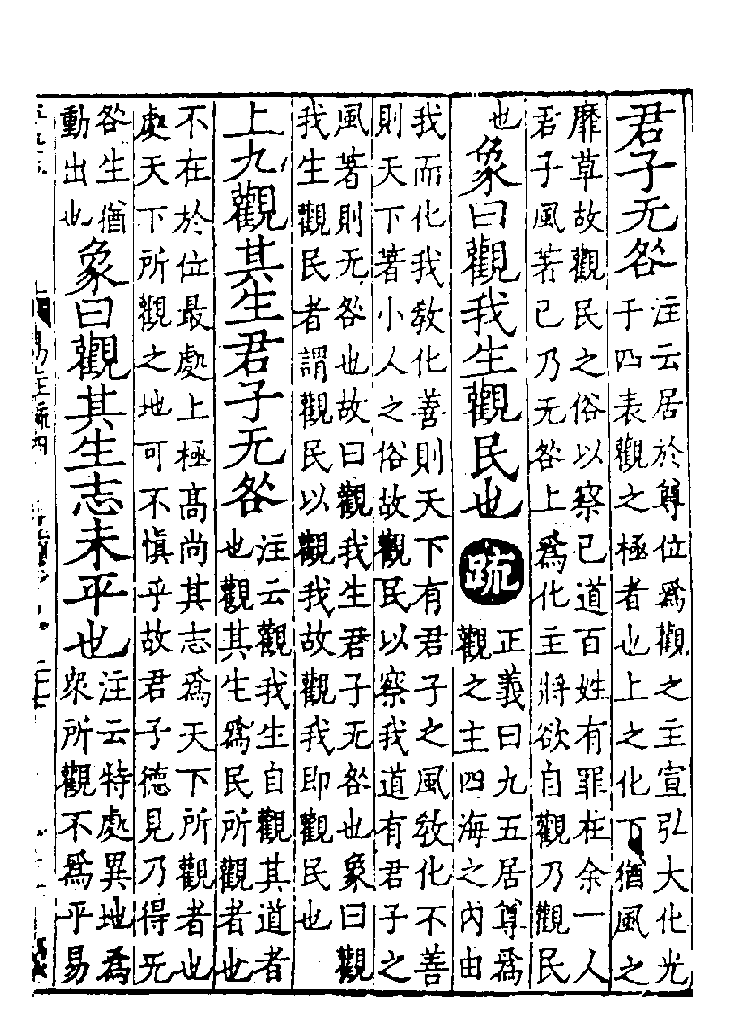 君子无咎
注云居於尊位爲觀之主宣弘大化光
于四表觀之極者也上之化下猶風之
靡草故觀民之俗以察己道百姓有罪在余一人
君子風著己乃无咎上爲化主將欲自觀乃觀民
也
象曰觀我生觀民也
疏
正義曰九五居尊爲
觀之主四海之内由
我而化我教化善則天下有君子之風教化不善
則天下著小人之俗故觀民以察我道有君子之
風著則无咎也故曰觀我生君子无咎也象曰觀
我生觀民者謂觀民以觀我故觀我即觀民也
上九觀其生君子无咎
注云觀我生自觀其道者
也觀其生爲民所觀者也
不在於位最處上極高尚其志爲天下所觀者也
處天下所觀之地可不慎乎故君子德見乃得无
咎生猶
動出也
象曰觀其生志未平也
注云特處異地爲
衆所觀不爲平易